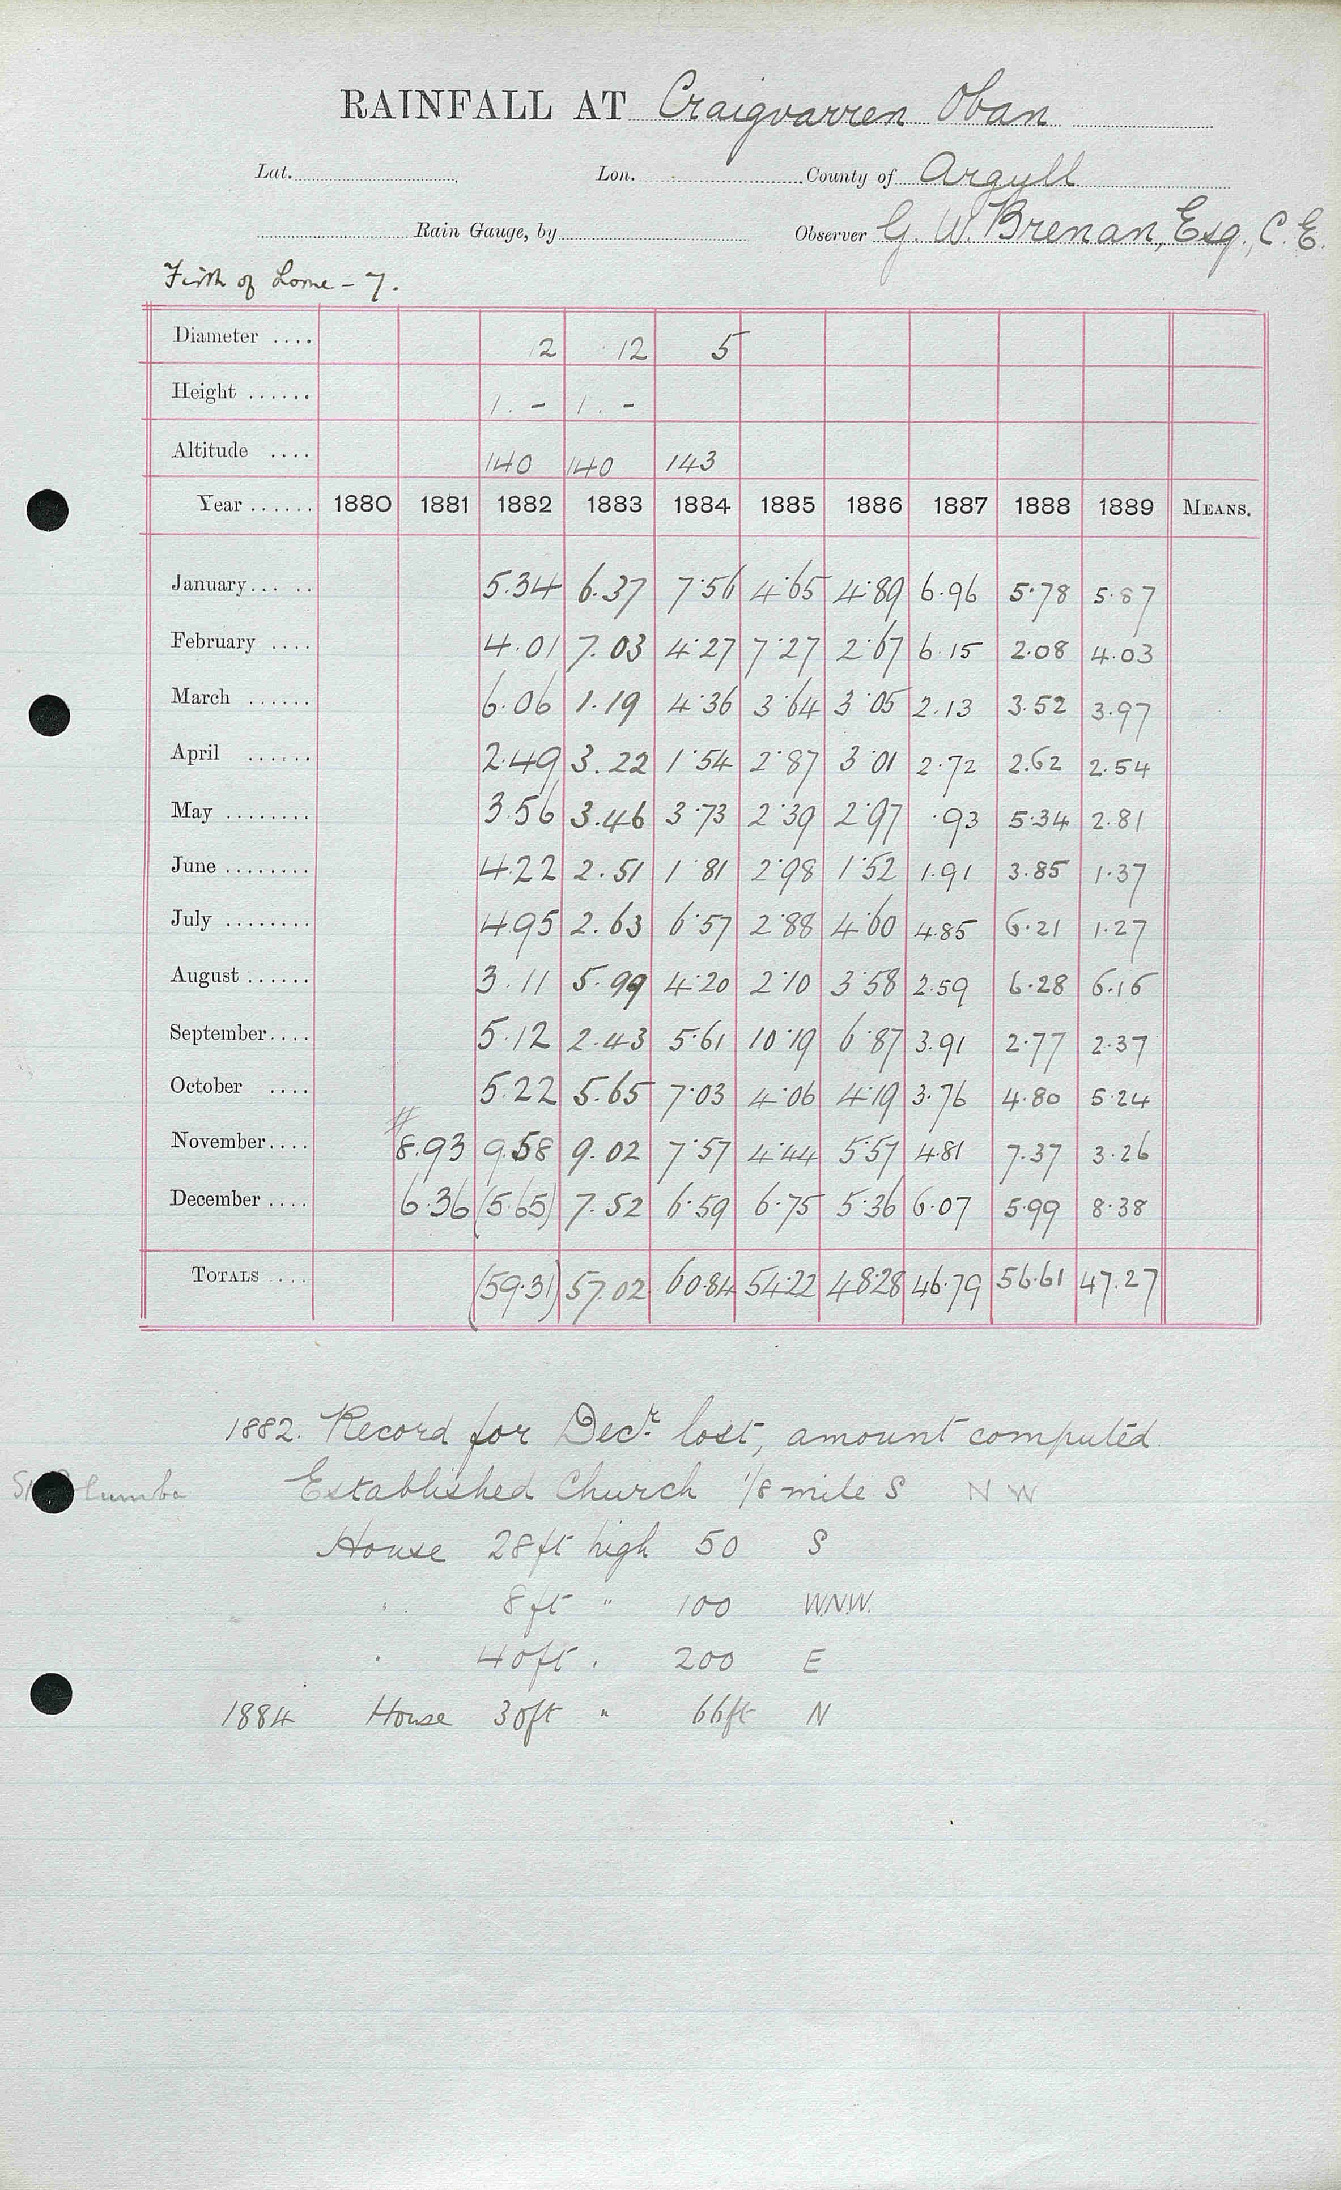 RAINFALL AT Craigvarren Oban
Lat. Lon. County of Argyll
Rain Gauge, by Observer G. W. Brenan, Esq., C.E.
Firth of Lorne - 7.
Diameter .... 12 12 5
Height ...... 1. - 1. -
Altitude .... 140 140 143
Year ...... 1880 1881 1882 1883 1884 1885 1886 1887 1888 1889 MEANS.
January... .. 5.34 6.37 7.56 4.65 4.89 6.96 5.78 5.87
February .... 4.01 7.03 4.27 7.27 2.67 6.15 2.08 4.03
March ...... 6.06 1.19 4.36 3.64 3.05 2.13 3.52 3.97
April ...... 2.49 3.22 1.54 2.87 3.01 2.72 2.62 2.54
May ........ 3.56 3.46 3.73 2.39 2.97 .93 5.34 2.81
June ........ 4.22 2.51 1.81 2.98 1.52 1.91 3.85 1.37
July ........ 4.95 2.63 6.57 2.88 4.60 4.85 6.21 1.27
August ...... 3.11 5.99 4.20 2.10 3.58 2.59 6.28 6.16
September.... 5.12 2.43 5.61 10.19 6.87 3.91 2.77 2.37
October .... 5.22 5.65 7.03 4.06 4.19 3.76 4.80 5.24
#
November.... 8.93 9.58 9.02 7.57 4.44 5.57 4.81 7.37 3.26
December .... 6.36 (5.65) 7.52 6.59 6.75 5.36 6.07 5.99 8.38
TOTALS .... (59.31) 57.02 60.84 54.22 48.28 46.79 56.61 47.27
1882. Record for Decr. lost, amount computed.
Established Church 1/8 mile S NW
House 28ft high 50 S
" 8ft " 100 W.N.W.
" 40ft " 200 E
1884 House 30ft " 66ft N